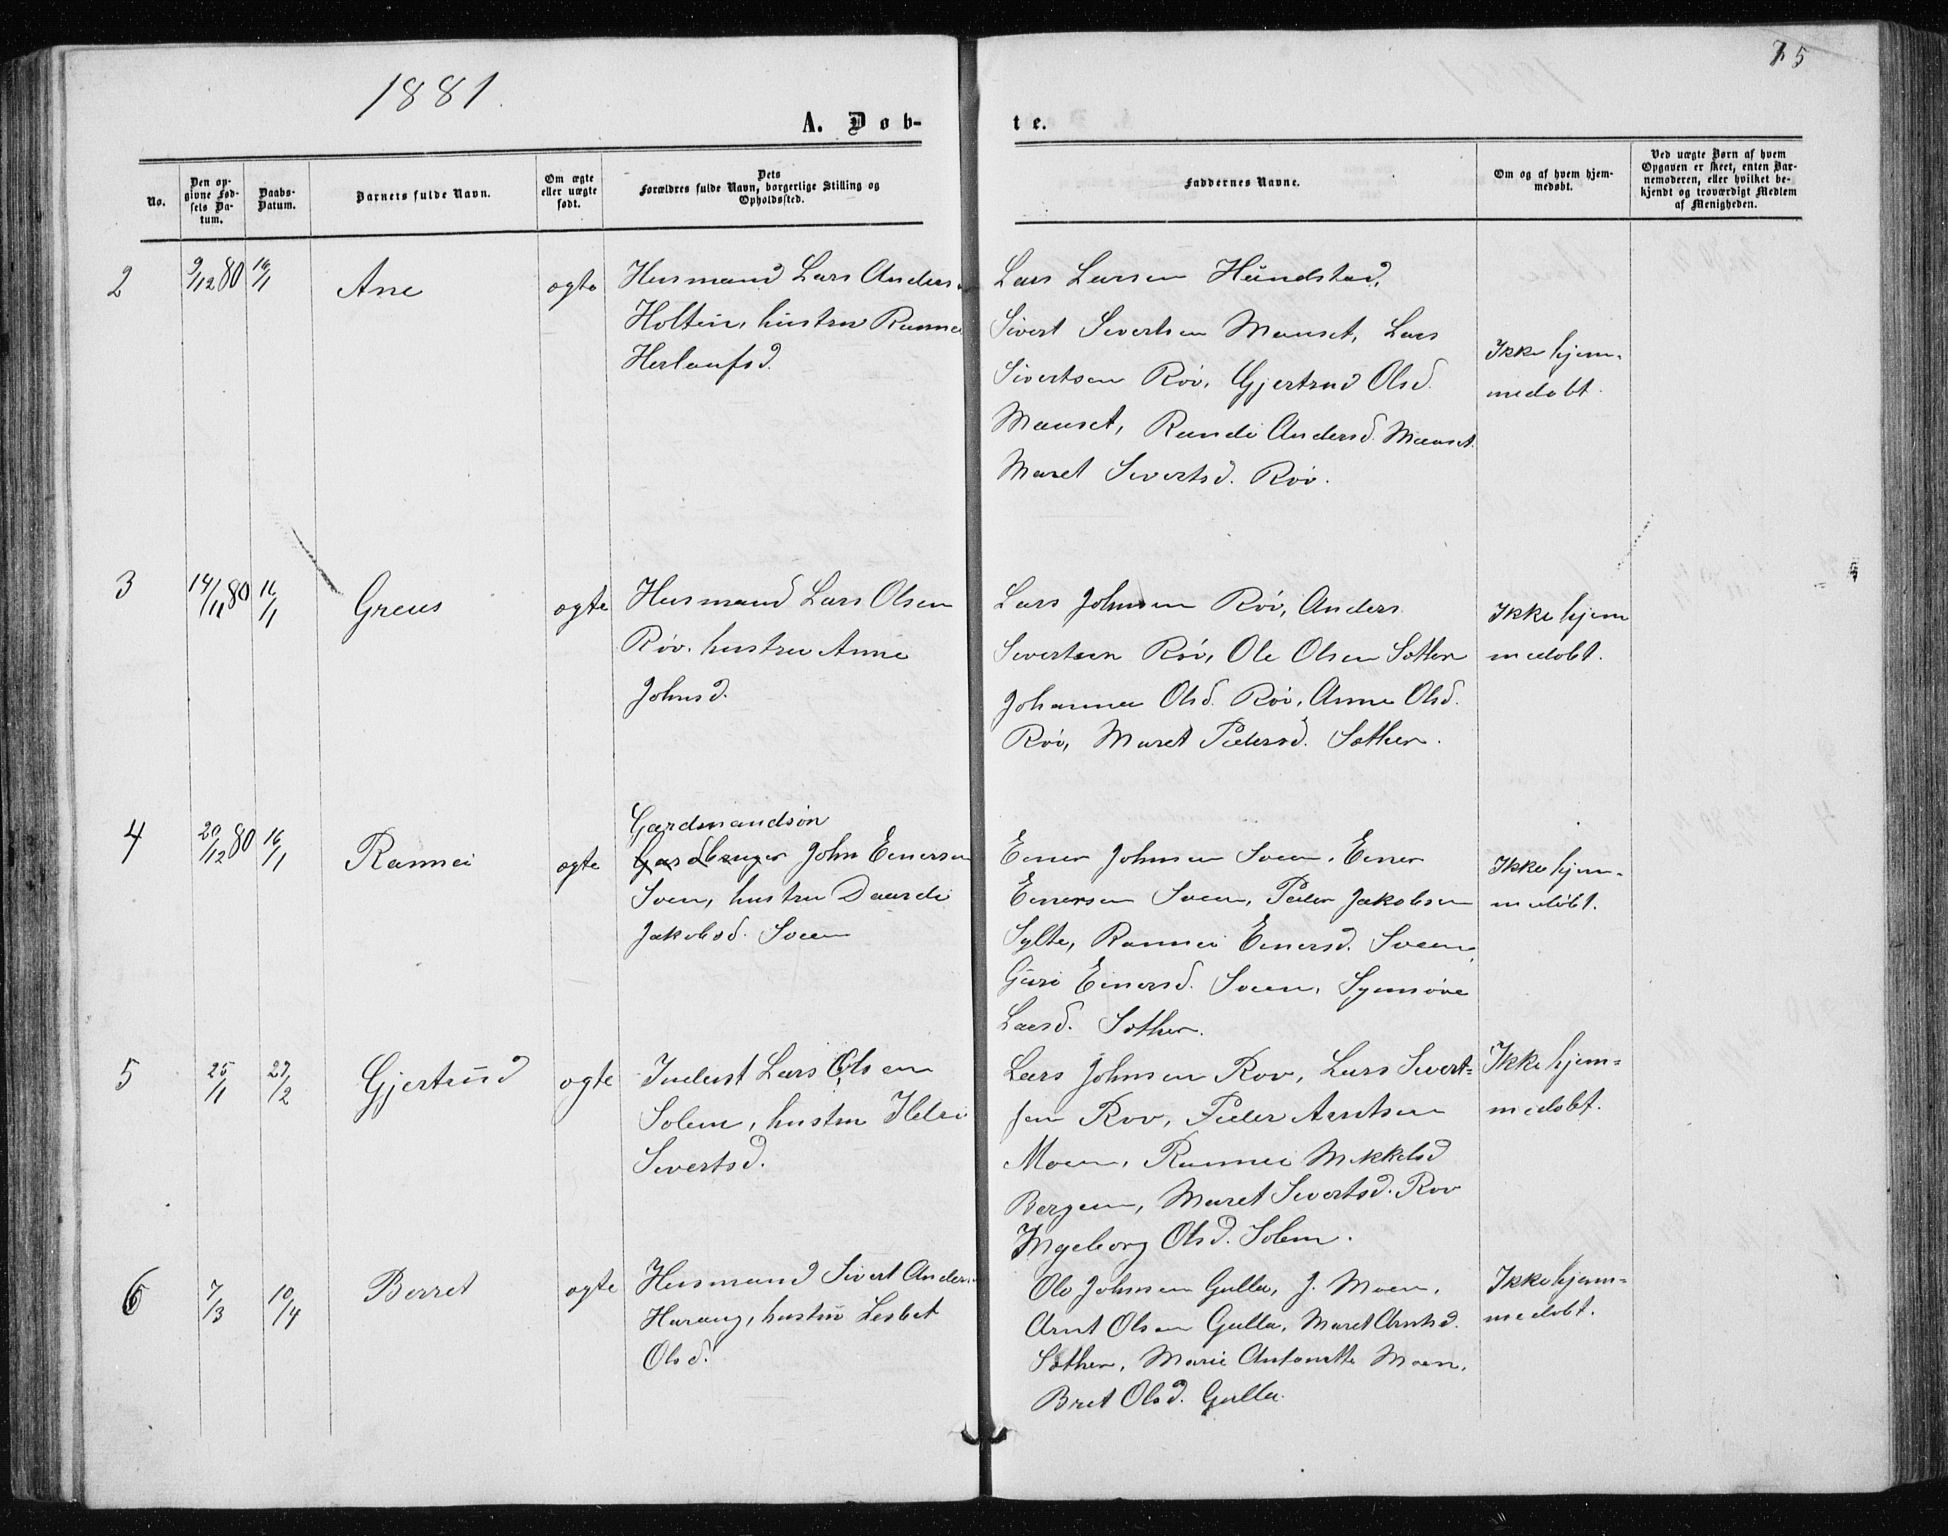 75
1881.
A. Døb-
te.
No.
Den op-
givne Fød-
sels Da-
tum.
Daabs-
Datum.
Barnets fulde Navn.
Om ægte
eller uægte
født.
Dets
Forældres fulde Navn, borgerlige Stilling og
Opholdssted.
Faddernes Navne.
Om og af hvem hjem-
medøbt.
Ved uægte Børn af hvem
Opgaven er skeet, enten Bar-
nemoderen, eller hvilket be-
kjendt og troværdigt Medlem
af Menigheden.
2
9/12 80
16/1
Ane
ægte
Husmand Lars Anders
Holten, hustru Rannei
Herlaufsd.
Lars Larsen Hundstad,
Sivert Sivertsen Mauset, Lars
Sivertsen Røv, Gjertrud Olsd.
Mauset, Randi Andersd. Mauset.
Maret Sivertsd. Røv.
Ikke hjem-
medøbt.
3
14/11 80
16/1
Greus
ægte
Husmand Lars Olsen
Røv. hustru Anne
Johnsd.
Lars Johnsen Røv, Anders
Sivertsen Røv, Ole Olsen Sæther
Johanna Olsd. Røv, Anne Olsd.
Røv, Maret Pedersd. Sæther.
Ikke hjem
medøbt.
4
20/12 80
16/1
Rannei
ægte
Gardmandsøn
Gardbruger John Einersen
Sven, hustru Daardi
Jakobsd. Sveen
Einer Johnsen Sveen, Einer
Einersen Sveen, Peder Jakobsen
Sylte, Rannei Einersd. Sveen,
Guri Einersd. Sveen, Synnøve
Larsd. Sæther.
Ikke hjem-
medøbt.
5
25/1
27/2
Gjertrud
ægte
Inderst Lars Olsen
Solem, hustru Ildri
Sivertsd.
Lars Johnsen Røv, Lars Sivert-
sen Røv, Peder Arntsen
Moen, Rannei Mikkelsd
Bergem, Maret Sivertsd. Røv
Ingeborg Olsd. Solem.
Ikke hjem-
medøbt.
6
7/3
10/4
Berret
ægte
Husmand Sivert Anders
Harang, hustru Lesbet
Olsd.
Ole Johnsen Gulla, J. Moen,
Arnt Olsen Gulla, Maret Arntsd.
Sæther, Marie Antonette Moen,
Bret Olsd. Gulla.
Ikke hjem-
medøbt.